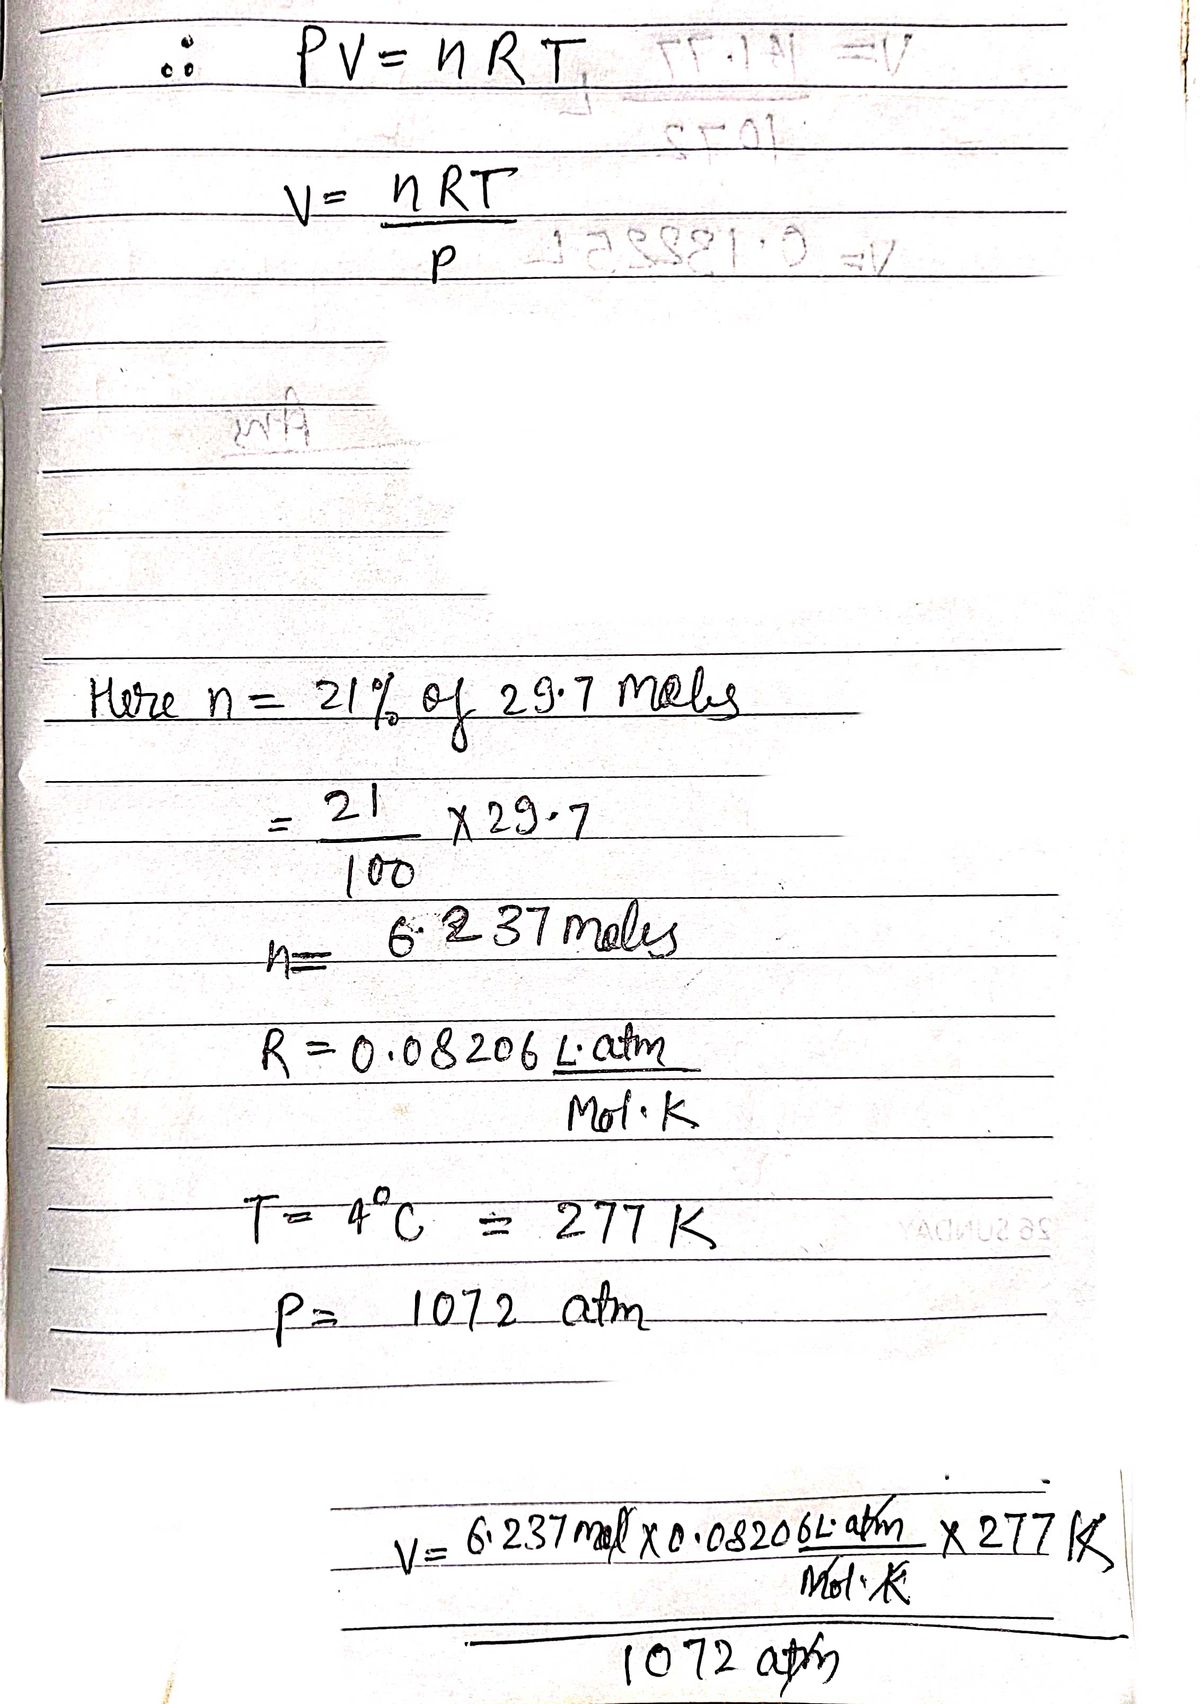 ∴ PV = nRT
V = nRT
P
Here n = 21% of 29.7 moles
= 21 × 29.7
100
n = 6.237 moles
R = 0.08206 L.atm
Mol.K
T = 4°C = 277 K
P = 1072 atm
V = 6.237 mol × 0.08206 L.atm × 277 K
Mol.K
1072 atm